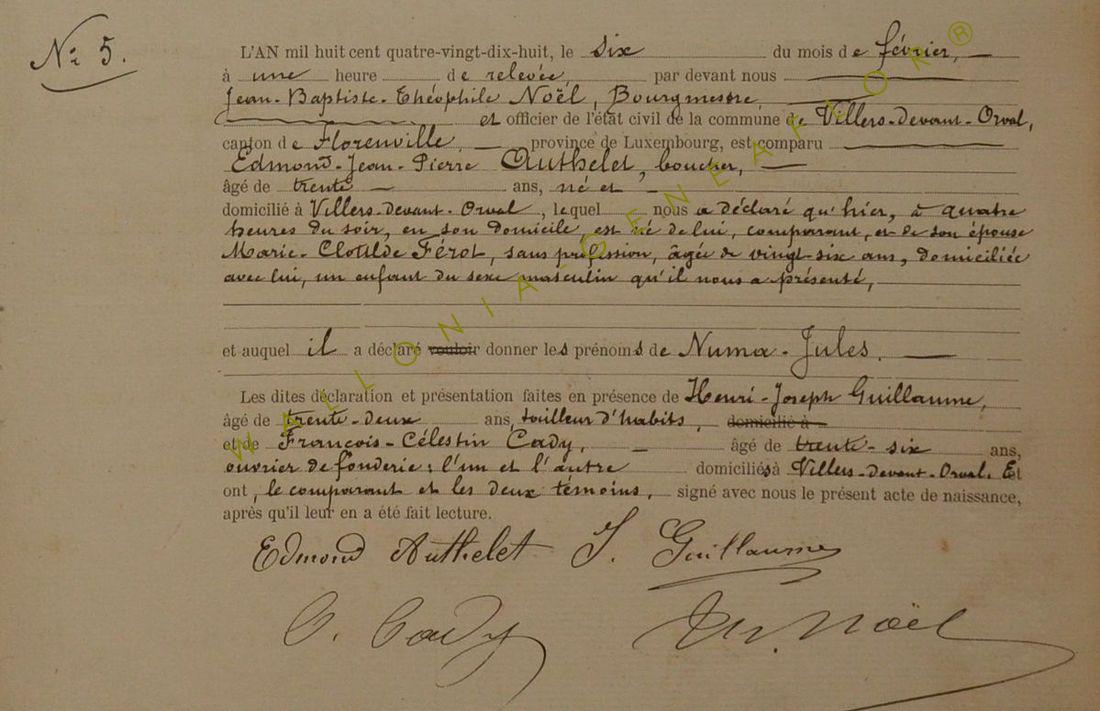 N° 5.
L'AN mil huit cent quatre-vingt-dix-huit, le six du mois de février,
à une heure de relevée, par devant nous
Jean-Baptiste-Théophile Noël, Bourgmestre
et officier de l'état civil de la commune de Villers-devant-Orval,
canton de Florenville, province de Luxembourg, est comparu
Edmond-Jean-Pierre Authelet, boucher,
âgé de trente ans, né et
domicilié à Villers-devant-Orval, lequel nous a déclaré qu'hier, à quatre
heures du soir, en son domicile, est né de lui, comparant, et de son épouse
Marie-Clotilde Férot, sans profession, âgée de vingt-six ans, domiciliée
avec lui, un enfant du sexe masculin qu'il nous a présenté,
et auquel il a déclaré vouloir donner les prénoms de Numa-Jules.
Les dites déclaration et présentation faites en présence de Henri-Joseph Guillaume,
âgé de trente-deux ans, tailleur d'habits, domicilié à
et de François-Célestin Cady, âgé de trente-six ans,
ouvrier de fonderie; l'un et l'autre domiciliés à Villers-devant-Orval. Et
ont, le comparant et les deux témoins, signé avec nous le présent acte de naissance,
après qu'il leur en a été fait lecture.
Edmond Authelet J. Guillaume
C. Cady Th. Noël
WALLONIA GENEAFOR ®